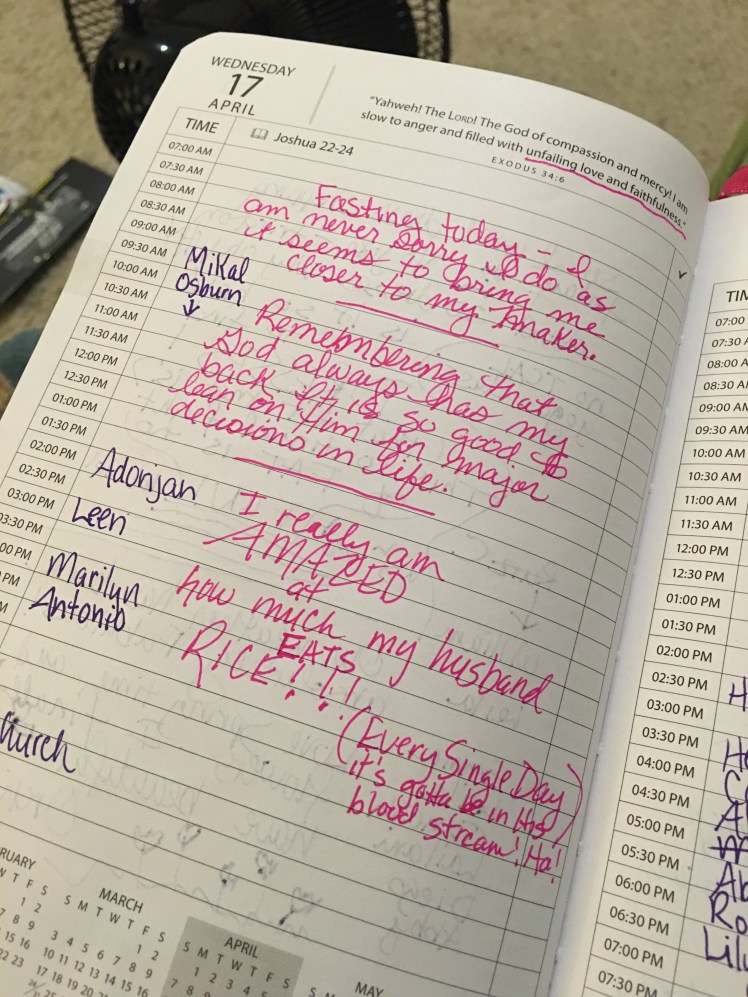 WEDNESDAY
17
APRIL
"Yahweh! The LORD! The God of compassion and mercy! I am
slow to anger and filled with unfailing love and faithfulness."
EXODUS 34:6
TIME
Joshua 22-24
07:00 AM
07:30 AM
08:00 AM
08:30 AM
09:00 AM
09:30 AM
10:00 AM
10:30 AM
11:00 AM
11:30 AM
12:00 PM
12:30 PM
01:00 PM
01:30 PM
02:00 PM
02:30 PM
03:00 PM
03:30 PM
:00 PM
PM
Fasting today - I
am never sorry I do as
it seems to bring me
closer to my Maker.
Mikal
Osburn
Remembering that
God always has my
back. It is so good to
lean on Him for major
decisions in life.
Adonjan
Leen
Marilyn
Antonio
I really am
AMAZED
at
how much my husband
EATS
RICE!!!!
(Every Single Day
it's gotta be in His
blood stream! Ha!)
hurch
RUARY
W T F S
1 2
MARCH
S M T W T F S
1 2
3 4 5 6 7 8 9
10 11 12 13 14 15 16
17 18 19 20 21 22 23
APRIL
S M T W T F S
1 2 3 4 5 6
MAY
TIM
07:00
07:30
08:00 A
08:30 AM
09:00 AM
09:30 AM
10:00 AM
10:30 AM
11:00 AM
11:30 AM
12:00 PM
12:30 PM
01:00 PM
01:30 PM
02:00 PM
02:30 PM
03:00 PM
03:30 PM
04:00 PM
04:30 PM
05:00 PM
05:30 PM
06:00 PM
06:30 PM
07:00 PM
07:30 PM
H
Ab
Ro
Lily